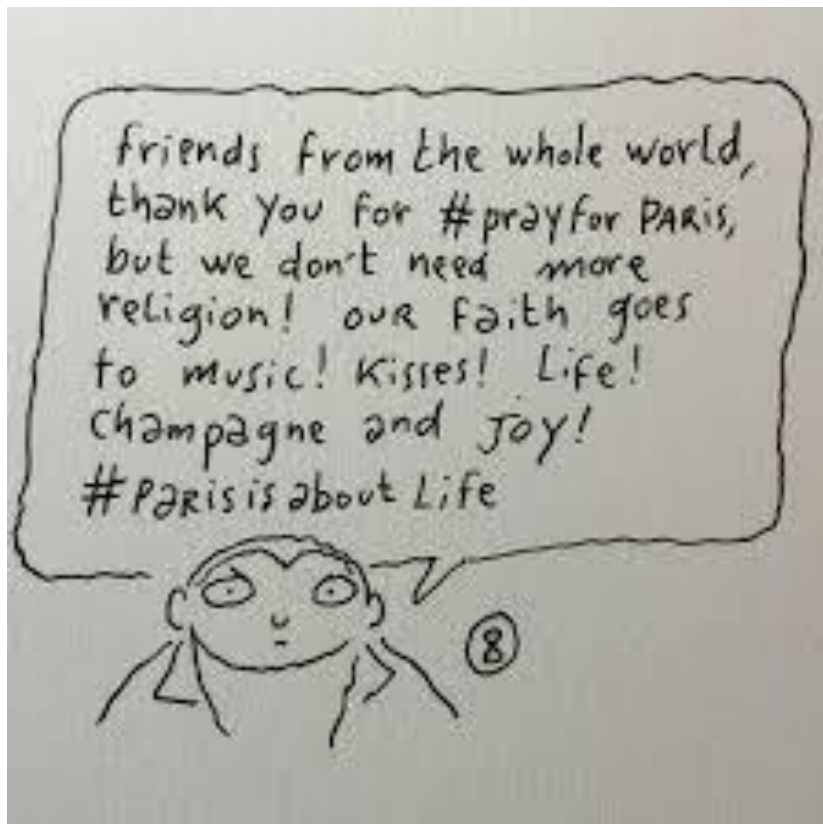 friends from the whole world,
thank you for #prayforPARis,
but we don't need more
religion! our faith goes
to music! Kisses! Life!
Champagne and Joy!
#Parisisaboutlife
8